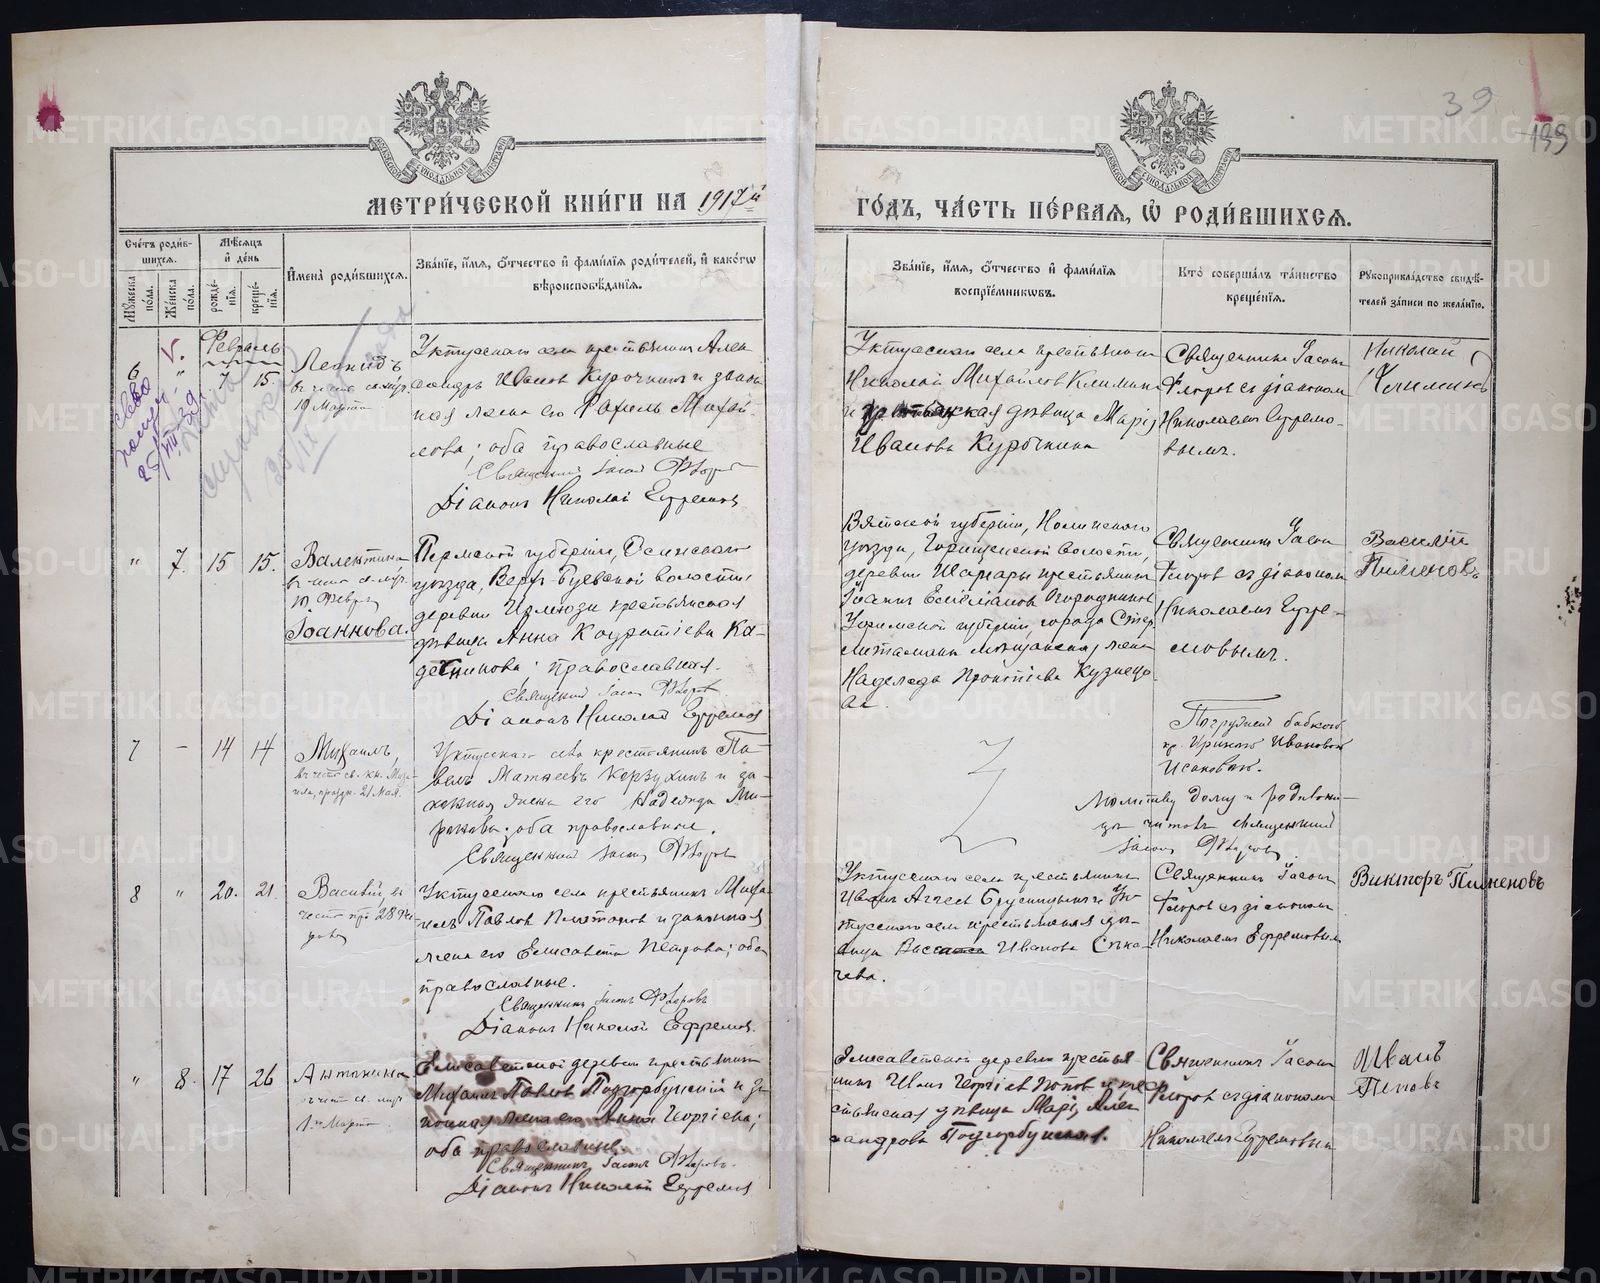 39
199
МЕТРИ́ЧЕСКОЙ КНИ́ГИ НА 1917й
ГО́ДЪ, ЧА́СТЬ ПЕ́РВАЯ, Ѡ҆ РОДИ́ВШИХСЯ.
Сче́тъ роди́в-
шихся.
Мꙋ́жеска по́ла.
Же́нска по́ла.
Мѣ́сяцъ и҆ де́нь
рожде́-
нїѧ.
креще́-
нїѧ.
И҆мена̀ роди́вшихся.
Зва́нїе, и҆́мѧ, ѻ҆́тчество и҆ фами́лїѧ роди́телей, и҆ како́гѡ
вѣроисповѣ́данїѧ.
Зва́нїе, и҆́мѧ, ѻ҆́тчество и҆ фами́лїѧ
воспрїе́мникѡвъ.
Кто̀ соверша́лъ та́инство
креще́нїѧ.
Рꙋкоприкла́дство свидѣ́-
телей за́писи по жела́нїю.
Февраль
6 " 7 15.
Леонидъ
19 Марта
Уктусскаго села крестьянинъ Алек
сандръ Ивановъ Курочкинъ и закон
ная жена его Рахиль Михай
лова; оба православные
Священникъ Іасонъ Флоровъ
Діаконъ Николай Ефремовъ
Уктусскаго села крестьянинъ
Николай Михайловъ Климинъ
и крестьянская дѣвица Марія
Иванова Курочкина
Священникъ Іасонъ
Флоровъ съ діакономъ
Николаемъ Ефремо-
вымъ.
Николай
Климинъ
" 7. 15 15.
Валентина
въ честь св. муч.
10 Февр.
Іоаннова.
Пермской губерніи, Осинскаго
уѣзда, Верх-Буевской волости
деревни крестьянская
дѣвица Анна Кондратіева Ка-
православная.
Священникъ Іасонъ Флоровъ
Діаконъ Николай Ефремовъ
Вятской губерніи, Нолинскаго
уѣзда, волости,
деревни крестьянинъ
Іоаннъ Емельяновъ Огородниковъ
Уфимской губерніи, города Стер
литамака мѣщанская жена
Надежда Кузнецо
ва.
Священникъ Іасонъ
Флоровъ съ діакономъ
Николаемъ Ефре-
мовымъ.
Василій
Пименовъ
7 - 14 14
Михаилъ,
въ честь св. кн. Миха-
ила, праздн. 21 Мая.
Уктусскаго села крестьянинъ Па-
велъ Матвеевъ Корзухинъ и за-
конная жена его Надежда Ми-
ронова; оба православные.
Священникъ Іасонъ Флоровъ
Погруженъ бабкою
кр. Ириною Ивановою
Исаковою.
Молитву дому и родильни-
цѣ читалъ священникъ
Іасонъ Флоровъ
8 " 20. 21.
Василій, въ
честь пр. 28 Фе
враля
Уктусскаго села крестьянинъ Миха
илъ Павловъ Платоновъ и законная
жена его Елисавета Петрова; оба
православные.
Священникъ Іасонъ Флоровъ
Діаконъ Николай Ефремовъ.
Уктусскаго села крестьянинъ
Иванъ Брусницынъ и Ук
тусскаго села крестьянская дѣ-
вица Васса Иванова Сыка-
чева.
Священникъ Іасонъ
Флоровъ съ діакономъ
Николаемъ Ефремовымъ
Викторъ Пименовъ
" 8. 17 26
Антонина
въ честь св. муч.
1го Марта.
Елисаветской деревни крестьянинъ
Михаилъ Павловъ Подгорбунскій и за
конная жена его Анна Георгіева;
оба православные.
Священникъ Іасонъ Флоровъ.
Діаконъ Николай Ефремовъ
Елисаветской деревни крестья
нинъ Иванъ Георгіевъ Поповъ и кре
стьянская дѣвица Марія Алек
сандрова Подгорбунская.
Священникъ Іасонъ
Флоровъ съ діакономъ
Николаемъ Ефремовымъ
Иванъ
Поповъ
METRIKI.GASO-URAL.RU